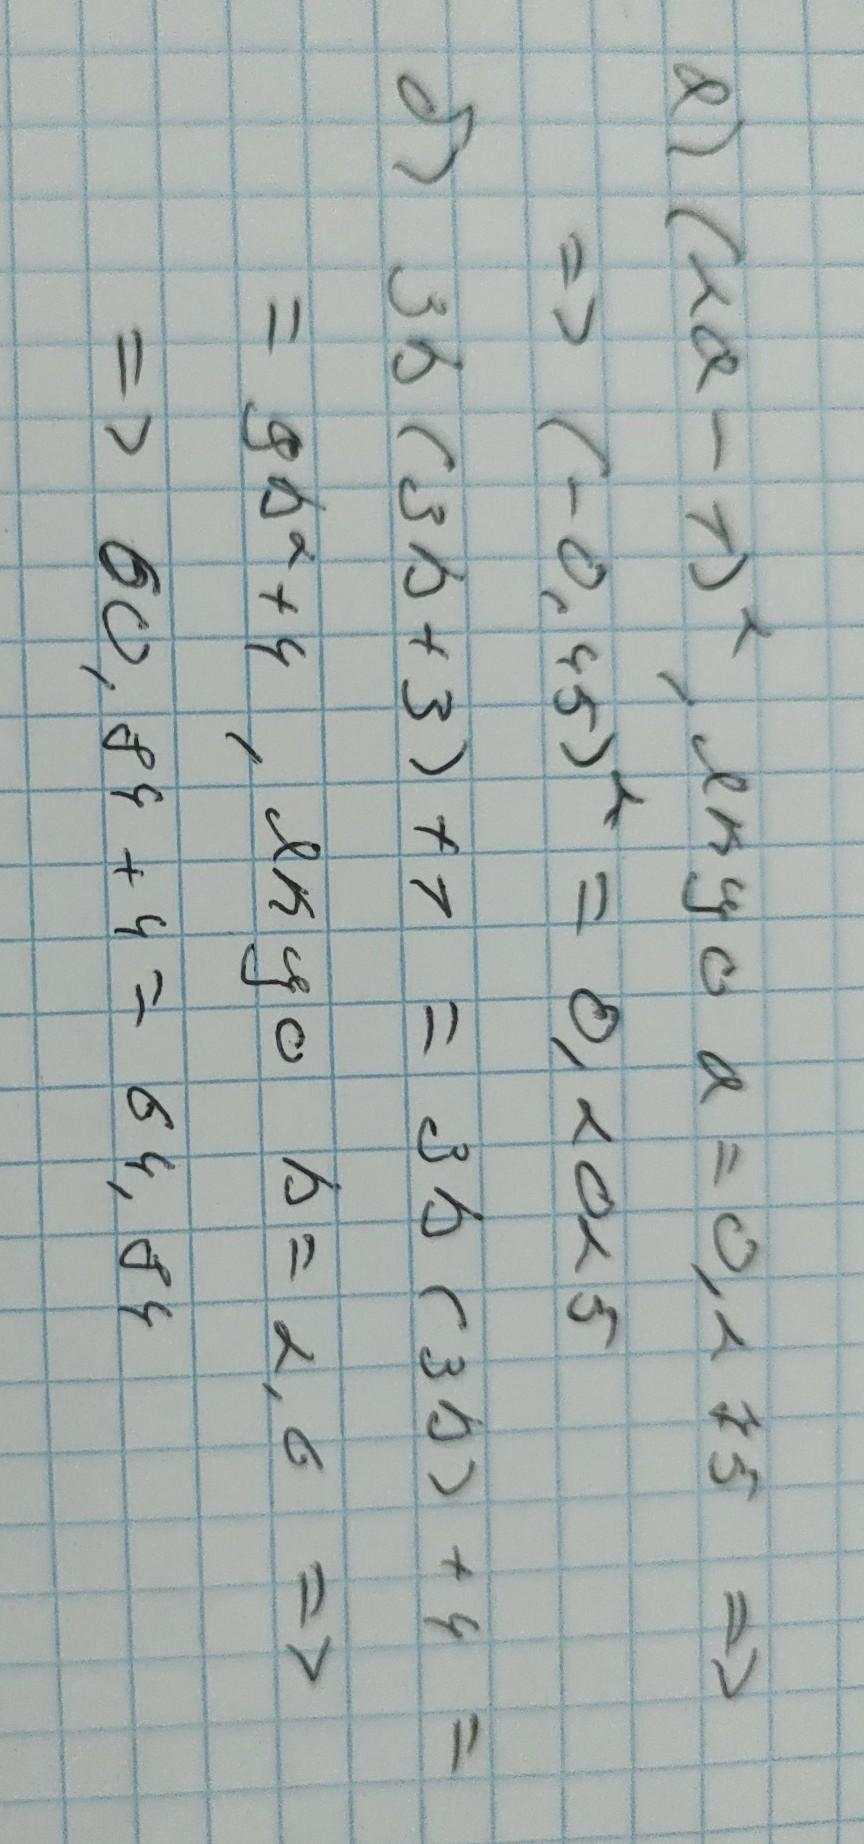 а) (2а - 1)², якщо а = 0,275 =>
=> (-0,45)² = 0,2025
б) 3b (3b + 3) + 1 = 3b (3b) + 4 =
= 9b² + 4, якщо b = 2,6 =>
=> 60,84 + 4 = 64,84